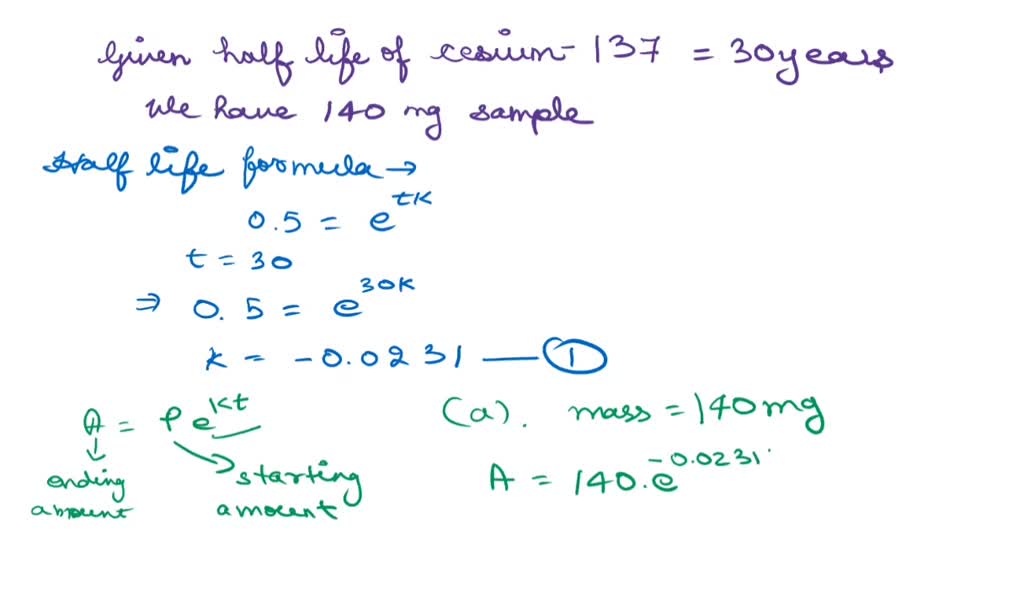 Given half life of cesium-137 = 30 years
We have 140 mg sample
Half life formula →
0.5 = e^tK
t = 30
⇒ 0.5 = e^30K
K = -0.0231 — ①
A = Pe^Kt
ending amount
starting amount
(a). mass = 140 mg
A = 140.e^-0.0231